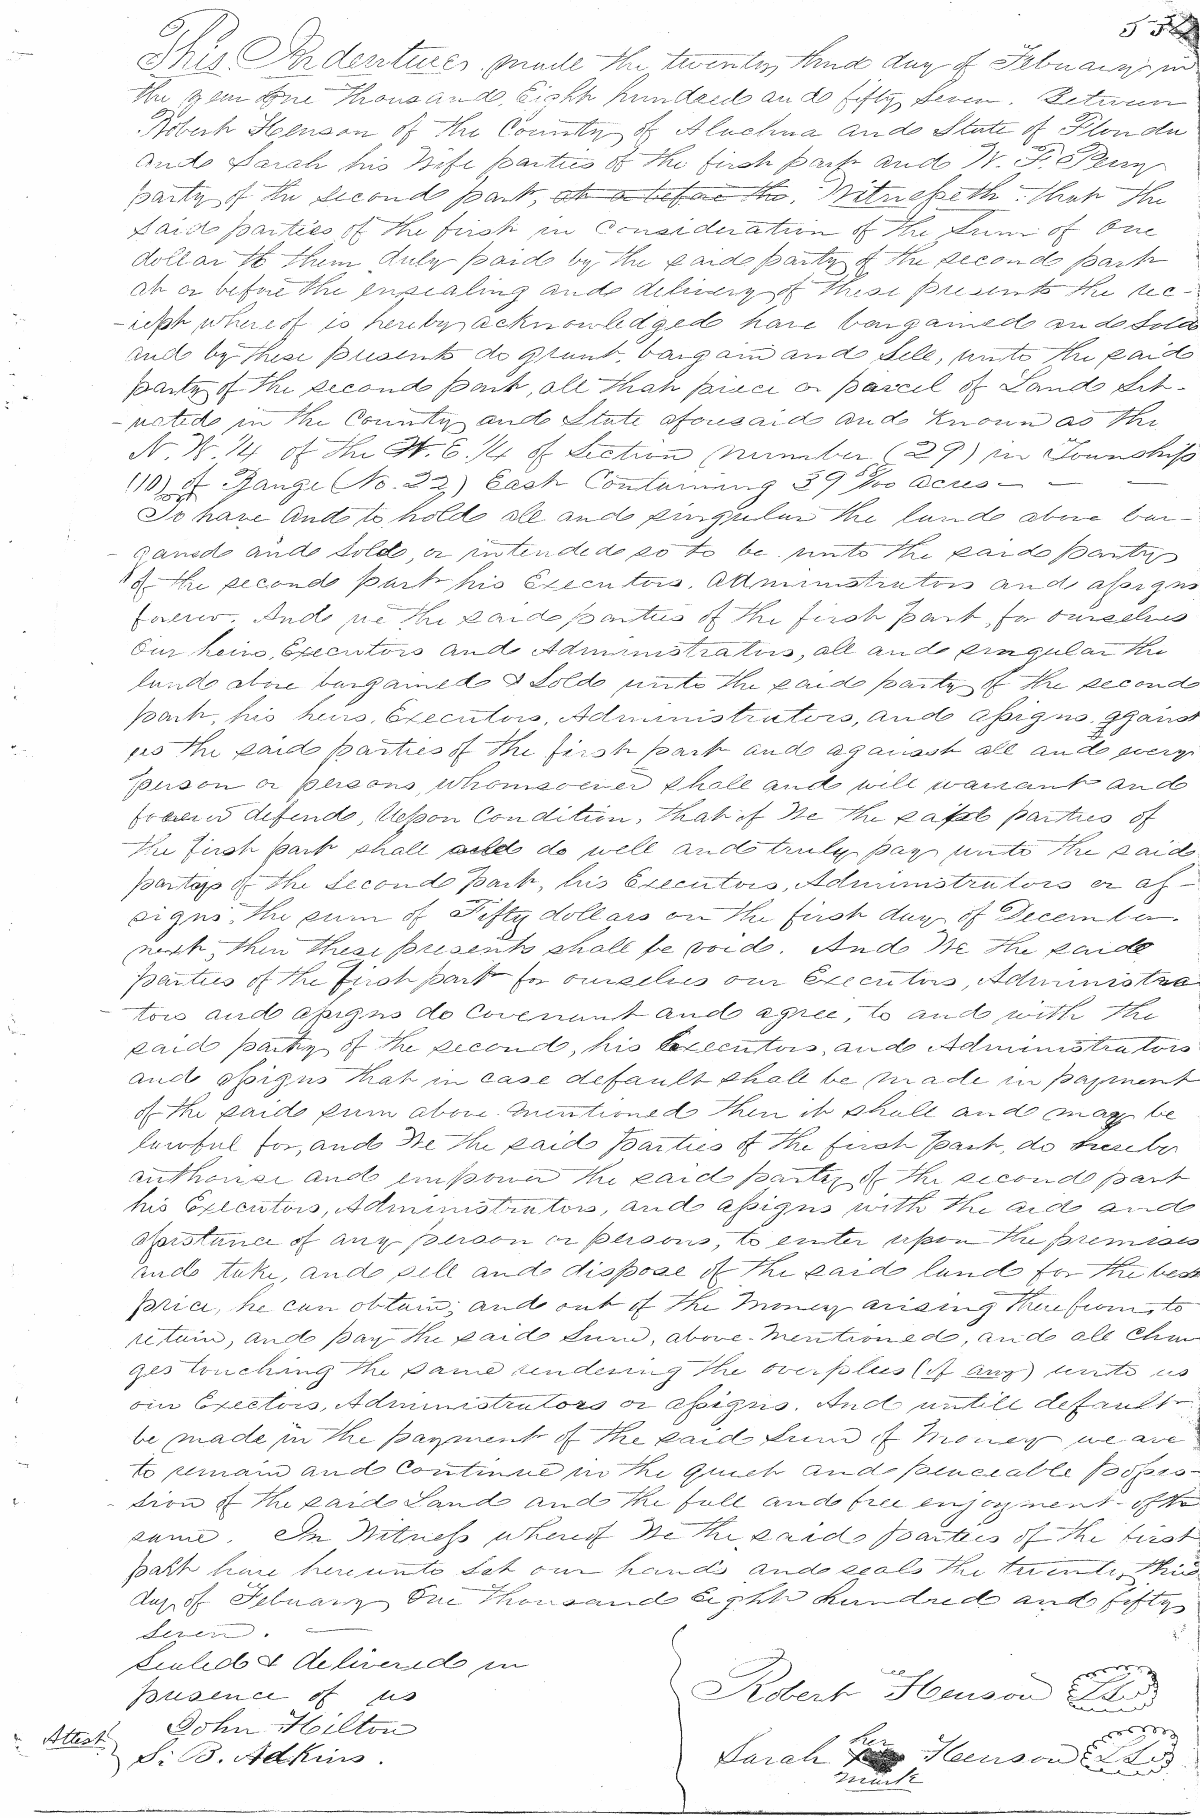 This Indenture, made the twenty third day of Febuary in
the year One thousand Eight hundred and fifty Seven. Between
Robert Henson of the County of Alachua and State of Florida
and Sarah his Wife parties of the first part and W. F. Perry
party of the second part, at a before the. Witnesseth: that the
said parties of the first in consideration of the Sum of One
dollar to them duly paid by the said party of the second part
at or before the ensealing and delivery of these presents the rec-
-iept whereof is hereby acknowledged have bargained and Sold
and by these presents do grant, bargain and Sell, unto the said
party of the second part, all that piece or parcel of Land Sit-
-uated in the County and State aforesaid and known as the
N. W. 1/4 of the N. E. 1/4 of Section number (29) in Township
(10) of Range (No. 22) East Containing 39 /100 acres - - -
To have and to hold all and singular the lands above bar-
-ganed and Sold, or intended so to be unto the said party
of the second part his Executors. Administrators and assigns
forever. And we the said parties of the first part, for ourselves
Our heirs, Executors and Administrators, all and singular the
land above bargained & Sold unto the said party of the second
part, his heirs, Executors, Administrators, and assigns, against
us the said parties of the first part and against all and every
person or persons, whomsoever shall and will warrant and
forever defend, Uppon Condition, that if We the said parties of
the first part shall and do well and truly pay unto the said
party of the Second Part, his Executors, Administrators or as-
signs, the sum of Fifty dollars on the first day of December
next, then these presents shall be void. And We the said
parties of the first part for ourselves our Executors, Administra
tors and assigns do Covenant and agree, to and with the
said party of the second, his Executors, and Administrators
and assigns that in case default shall be made in payment
of the said sum above mentioned then it shall and may be
lawful for, and We the said parties of the first Part, do hereby
authorise and empower the said party of the second part
his Executors, Administrators, and assigns with the aid and
assistance of any person or persons, to enter upon the premises
and take, and sell and dispose of the said land for the best
price, he can obtain; and out of the Money arising therefrom, to
retain, and pay the said Sum, above mentioned, and all Char
ges touching the same rendering the overplus (if any) unto us
our Exectors, Administrators or assigns. And untill default
be made in the payment of the said Sum of Money we are
to remain and Continue in the quiet and peaceable posses-
-sion of the said Land and the full and free enjoyment of the
same. In Witness whereof We the said parties of the first
part have hereunto Set our hands and seals the twenty third
day of Febuary One thousand Eight hundred and fifty
Seven. -
Sealed & delivered in
presence of us
Robert Henson
Attest John Hilton
S. B. Adkins.
her
Sarah Henson
mark